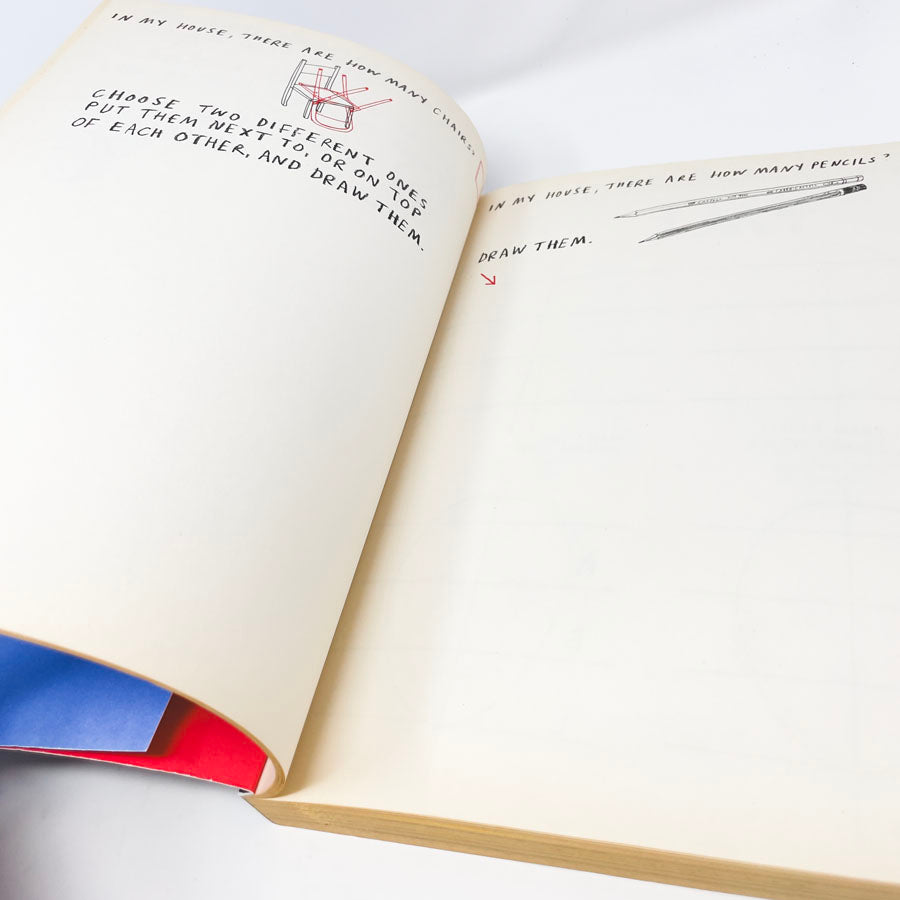 IN MY HOUSE, THERE ARE HOW MANY CHAIRS?
CHOOSE TWO DIFFERENT ONES
PUT THEM NEXT TO, OR ON TOP
OF EACH OTHER, AND DRAW THEM.
IN MY HOUSE, THERE ARE HOW MANY PENCILS?
DRAW THEM.